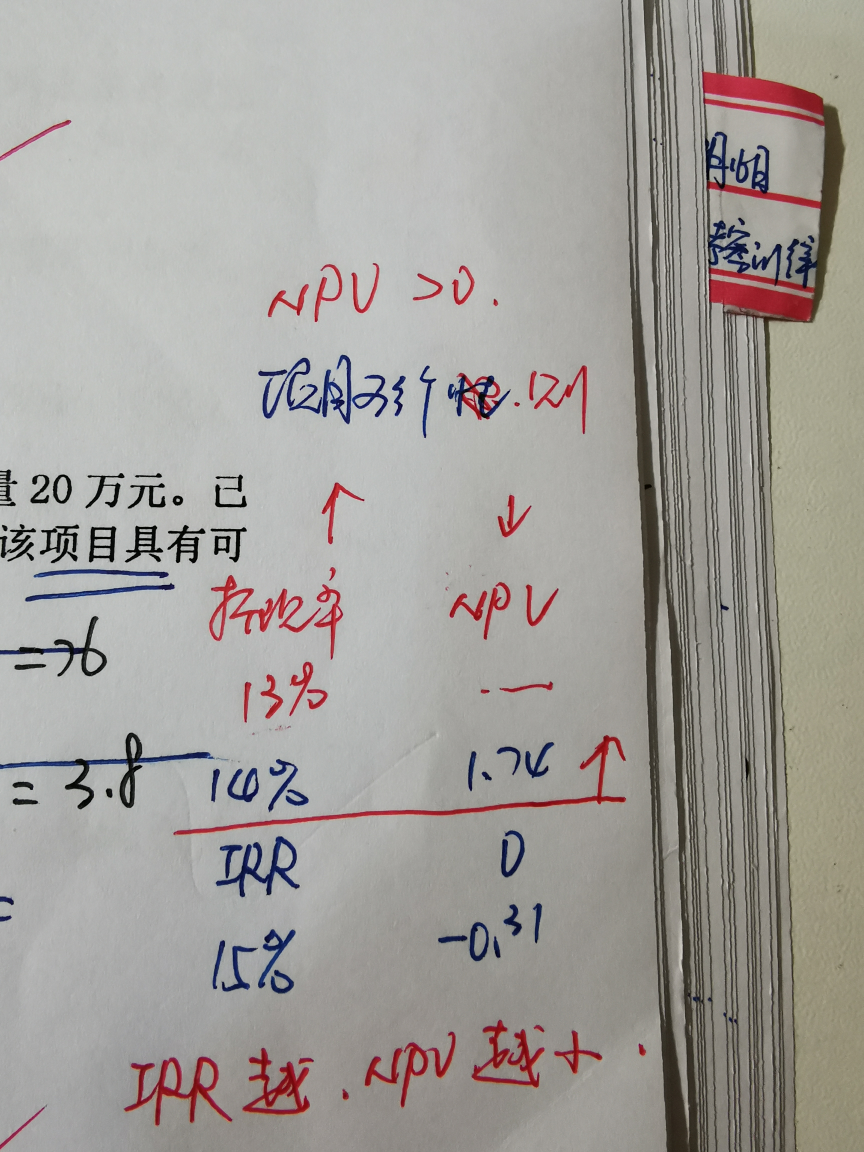 月16日
训练
NPV >0.
项目可行性.原则
量 20 万元。已
该项目具有可
↑ ↓
折现率 NPV
=76
13% —
= 3.8
14% 1.74 ↑
IRR 0
=
15% -0.31
IRR 越.NPV 越小.